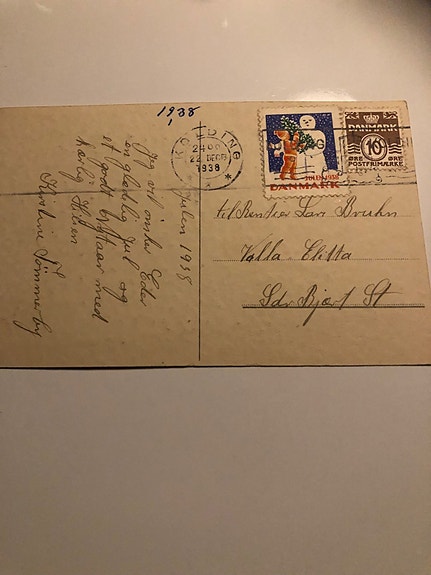 1938
Julen 1938
Jeg vil ønske Eder
en glædelig Jul og
et godt Nytaar med
kærlig Hilsen
Kirstine Tømmerby
KOLDING
24 00
22 DECBR
1938
*
JULEN 1938
DANMARK
DANMARK
10
ØRE ØRE
POSTFRIMÆRKE
til Rentier Bruhn
Villa
Sdr Bjert St